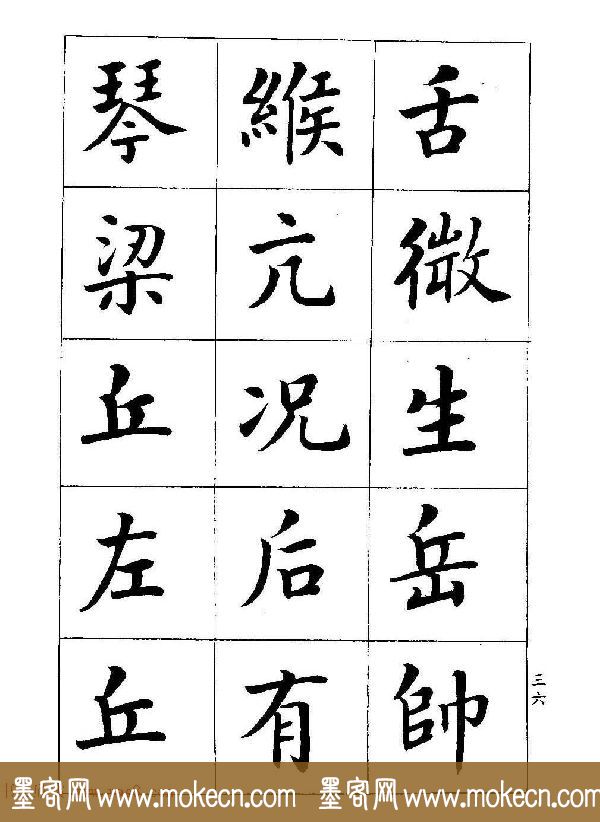 舌微生岳帥
緱亢况后有
琴梁丘左丘
三六
墨客网 www.mokecn.com 墨客网 www.mokecn.com